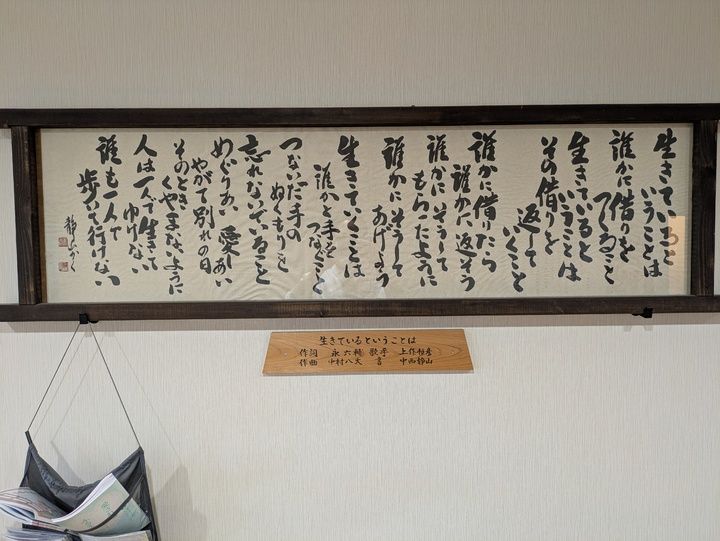 生きていると
いうことは
誰かに借りを
つくること
生きていると
いうことは
その借りを
返して
いくこと
誰かに借りたら
誰かに返そう
誰かにそうして
もらったように
誰かにそうして
あげよう
生きていくことは
誰かと手を
つなぐこと
つないだ手の
ぬくもりを
忘れないでいること
めぐりあい 愛しあい
やがて別れの日
そのとき
くやまないように
人は一人で生きて
ゆけない
誰も一人で
歩いて行けない
静山かく
生きているということは
作詞 永六輔 歌手 上条恒彦
作曲 中村八大 書 中西静山